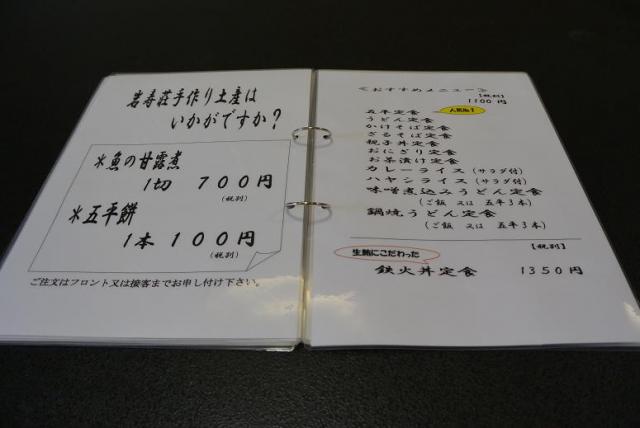 岩寿荘手作り土産は
いかがですか?
*魚の甘露煮
1切 700円
(税別)
*五平餅
1本 100円
(税別)
ご注文はフロント又は接客までお申し付け下さい。
<おすすめメニュー>
【税別】
1100円
五平定食 人気No1
うどん定食
かけそば定食
ざるそば定食
親子丼定食
おにぎり定食
お茶漬け定食
カレーライス (サラダ付)
ハヤシライス (サラダ付)
味噌煮込みうどん定食
(ご飯 又は 五平3本)
鍋焼うどん定食
(ご飯 又は 五平3本)
生鮪にこだわった 【税別】
鉄火丼定食 1350円